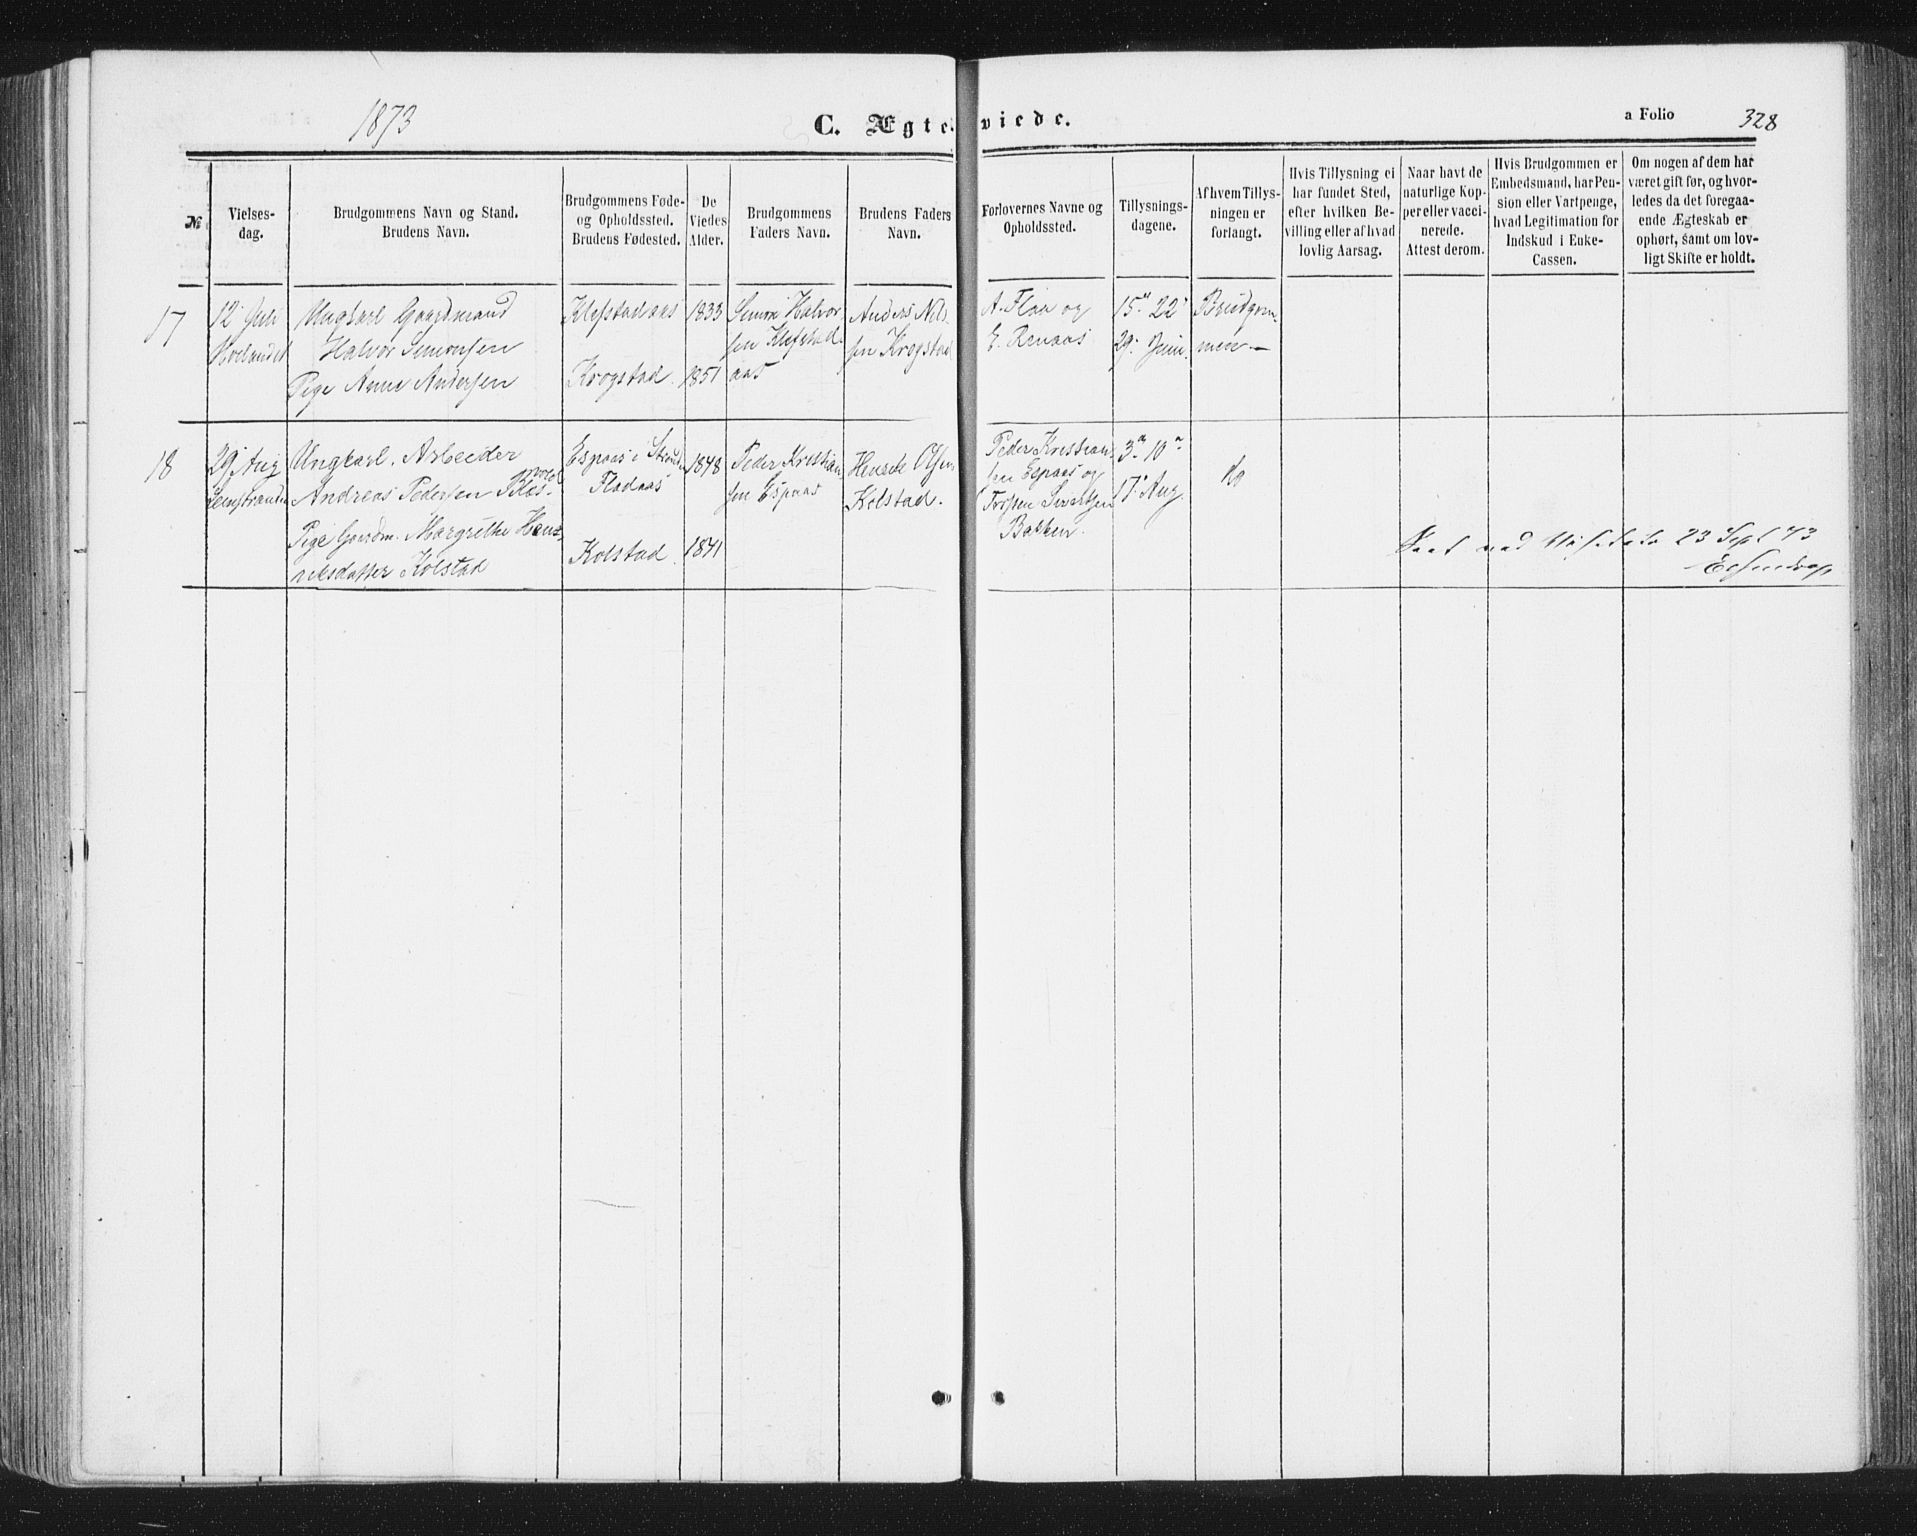 1873
C. Ægteviede.
a Folio 328
№
Vielses-
dag.
Brudgommens Navn og Stand.
Brudens Navn.
Brudgommens Føde-
og Opholdssted.
Brudens Fødested.
De
Viedes
Alder.
Brudgommens
Faders Navn.
Brudens Faders
Navn.
Forlovernes Navne og
Opholdssted.
Tillysnings-
dagene.
Af hvem Tillys-
ningen er
forlangt.
Hvis Tillysning ei
har fundet Sted,
efter hvilken Be-
villing eller af hvad
lovlig Aarsag.
Naar havt de
naturlige Kop-
per eller vacci-
nerede.
Attest derom.
Hvis Brudgommen er
Embedsmand, har Pen-
sion eller Vartpenge,
hvad Legitimation for
Indskud i Enke-
Cassen.
Om nogen af dem har
været gift før, og hvor-
ledes da det foregaa-
ende Ægteskab er
ophørt, samt om lov-
ligt Skifte er holdt.
17
12 Juli
Ungkarl Gaardmand
Halvor Simonsen
Pige Anne Andersen
Klefstadaas
Krogstad
1833
1851
Simon Halvor
sen Klefstad
aas
Anders Nil-
sen Krogstad
A. Flaa og
E. Renaas
15" 22"
29" Juni
Brudgom-
men
18
29 Aug
Ungkarl. Arbeider
Andreas Pedersen
Pige Margrethe Hen-
riksdatter Kolstad
Espaas i
Fladaas
Kolstad.
1848
1841
Peder Kristian
sen Espaas
Henrik Olsen
Kolstad.
Peder Kristian
sen Espaas og
Sivertsen
Bakken.
3" 10"
17" Aug.
do
23 Sept 73